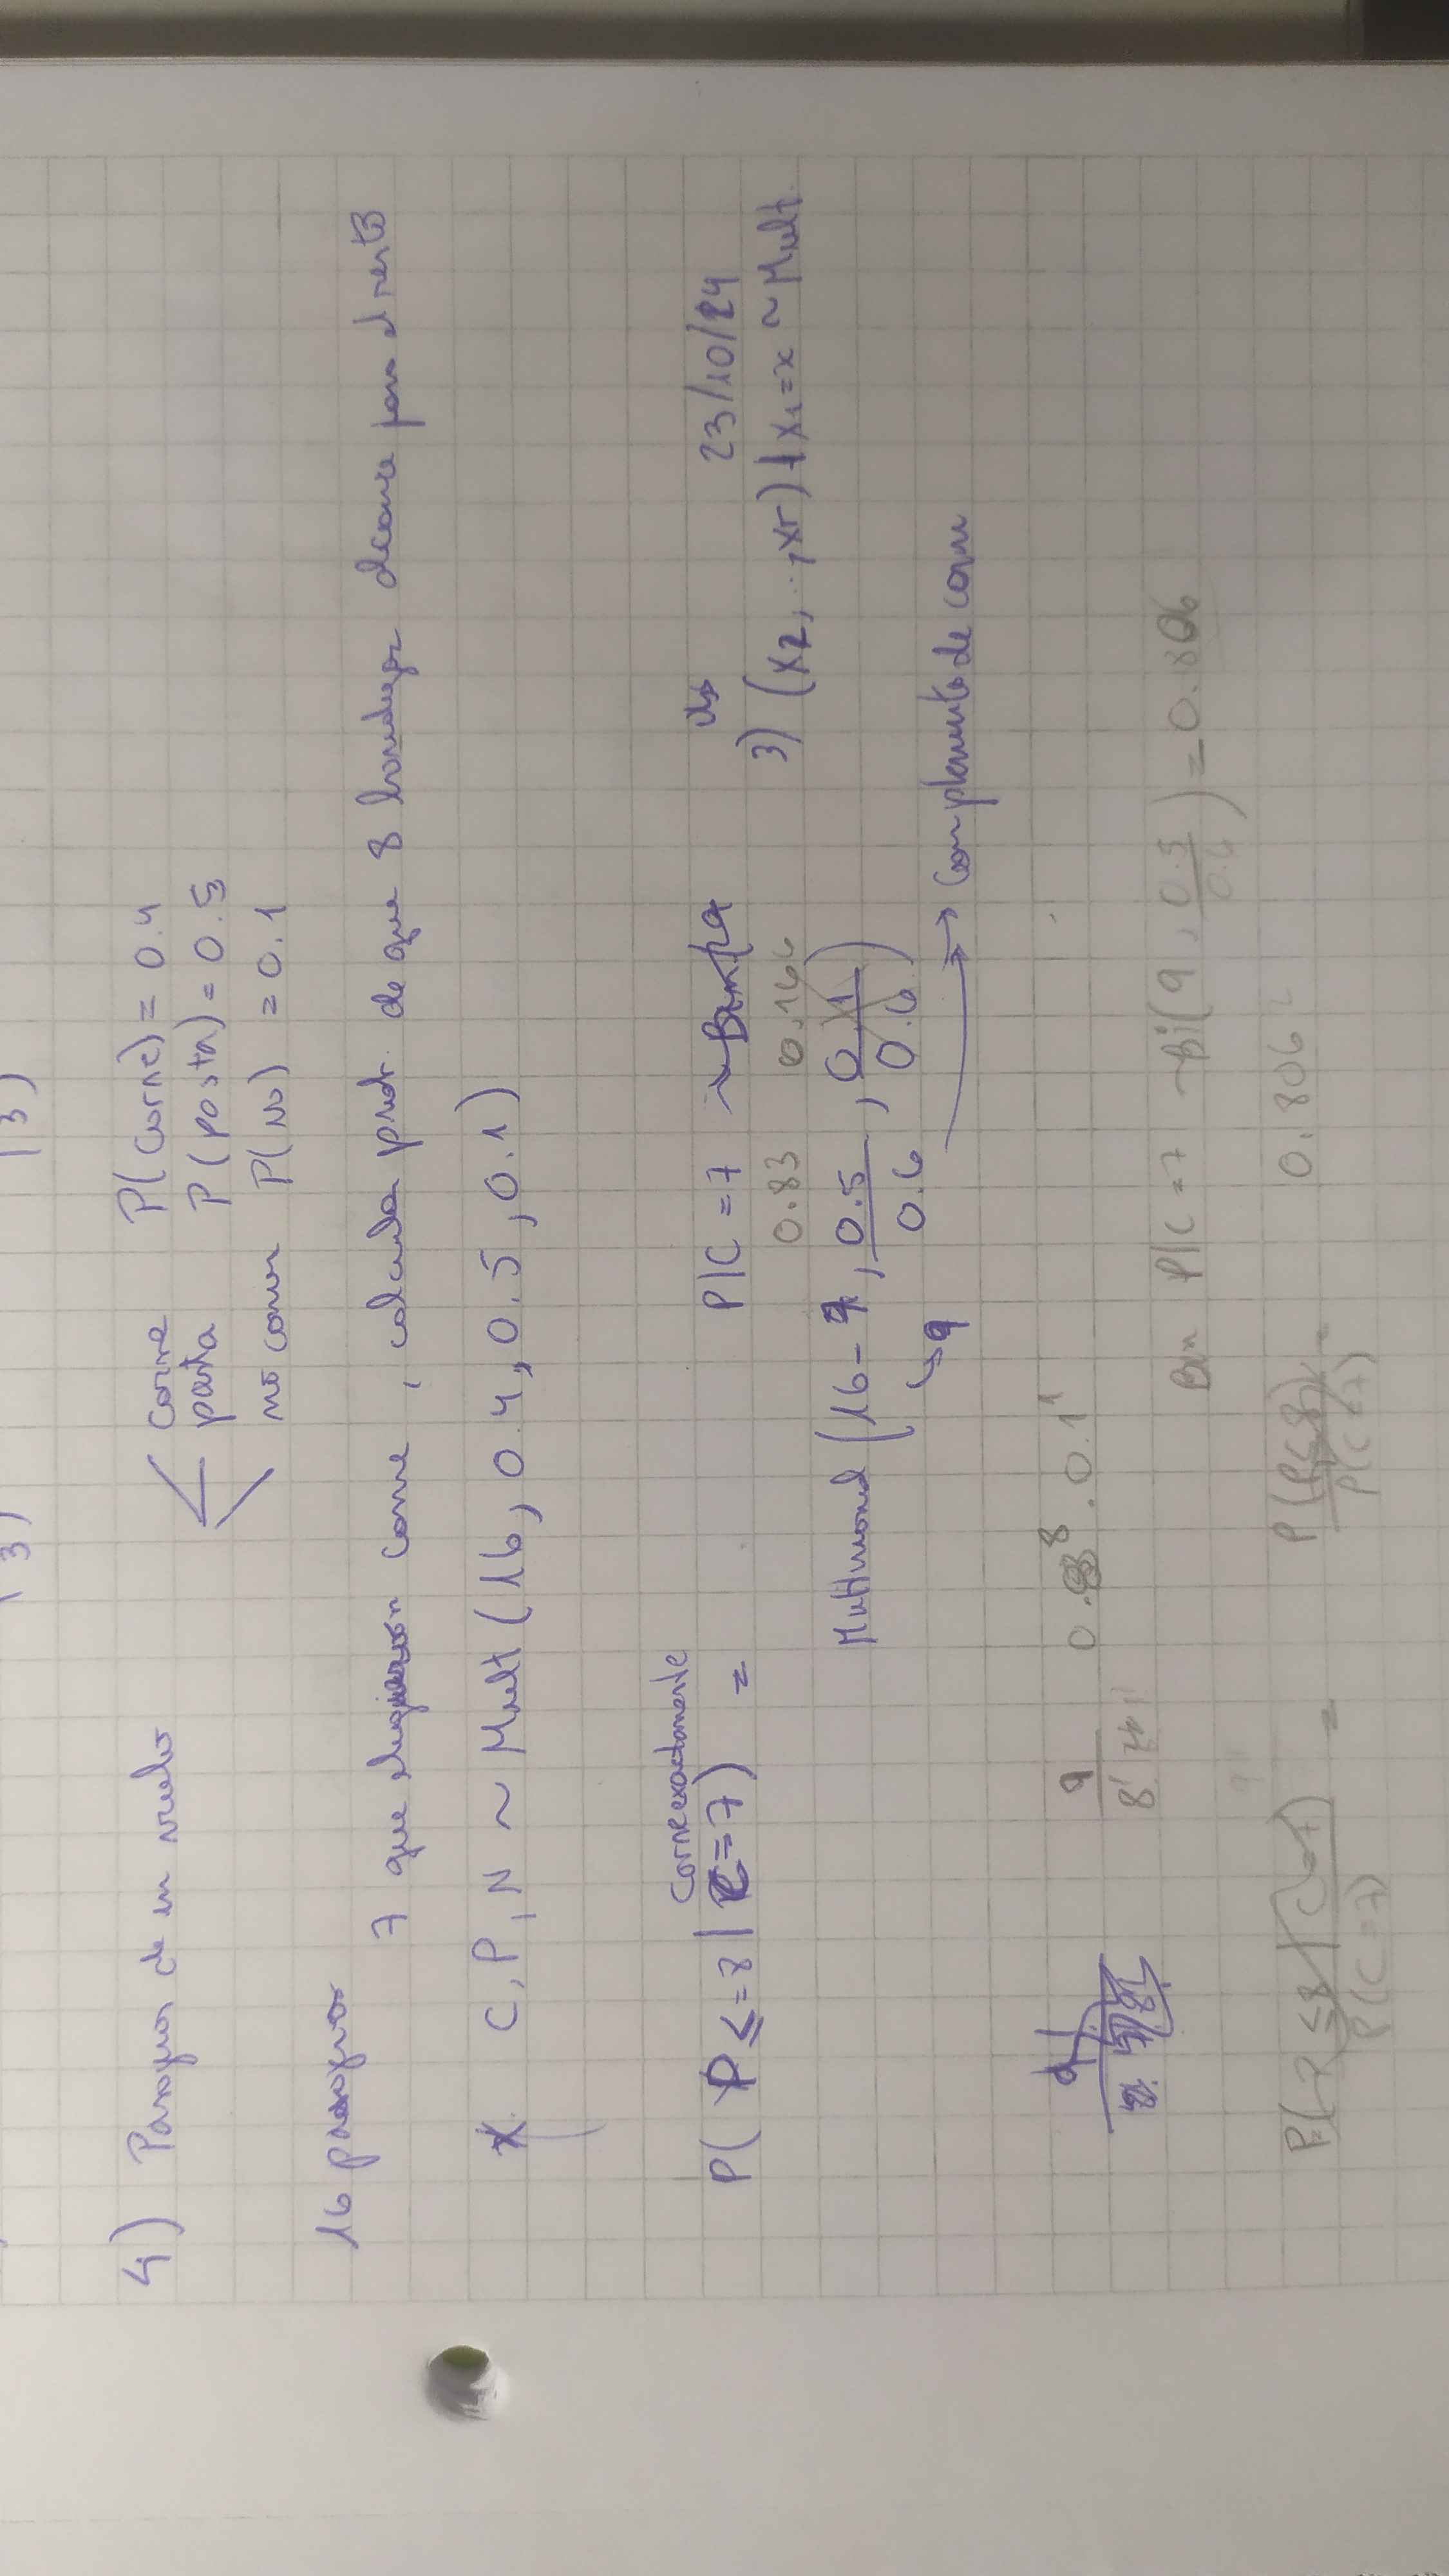 3) 3)
4) Pasajeros de un vuelo
carne P(carne) = 0.4
pasta P(pasta) = 0.5
no comer P(No) = 0.1
16 pasajeros
7 que eligieron carne, calcula prob. de que 8 bandejas alcance para el resto
X. C, P, N ~ Mult (16, 0.4, 0.5, 0.1)
carne exactamente
P( P <= 8 | C = 7) =
P|C = 7 ~ Bin(9
0.83 0.166
Multinomial (16 - 7, 0.5/0.6, 0.1/0.6)
↳ 9
→ Complemento de carne
23/10/24
3) (X2, .., Xr) | X1 = x ~ Mult.
9!
9 / 8! 1! 0.83^8 . 0.1^1
Bin P|C = 7 ~ Bi(9, 0.5/0.6) = 0.806
P(P ≤ 8 | C = 7) / P(C = 7) = P(P ≤ 8) / P(C = 7) = 0.806